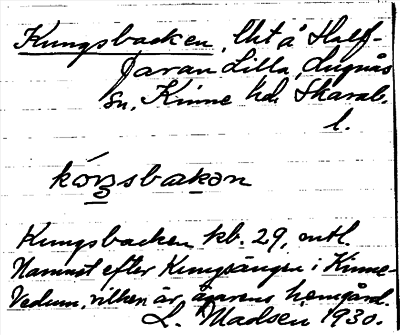 Kungsbacken, lht å Hälf-
Jaran Lilla, Lugnås
sn, Kinne hd. Skarab.
l.
kóŋsbakən
Kungsbacken kb. 29, enl.
Namnet efter Kungsängen i Kinne-
Vedum, vilken är ägarens hemgård.
L. Madsen 1930.